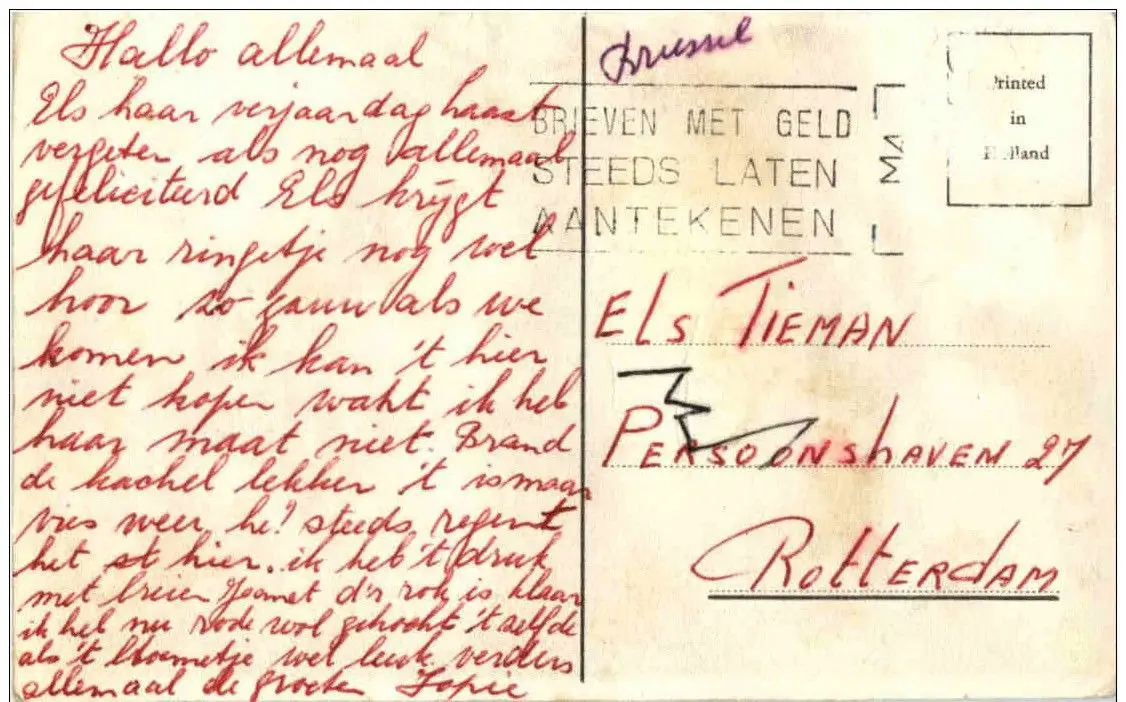 Hallo allemaal
Els haar verjaardag haast
vergeten als nog allemaal
gefeliciteerd Els krijgt
haar ringetje nog wel
hoor zo gauw als we
komen ik kan 't hier
niet kopen waht ik heb
haar maat niet. Brand
de kachel lekker 't is maar
vies weer he! steeds regent
het st hier. ik heb 't druk
met breien Jeannet d'r rok is klaar
ik heb nu rode wol gekocht 't zelfde
als 't bloemetje wel leuk verders
allemaal de groeten Jopie
Brussel
BRIEVEN MET GELD
STEEDS LATEN
AANTEKENEN
Printed
in
Holland
ELS TIEMAN
PERSOONSHAVEN 27
ROTTERDAM